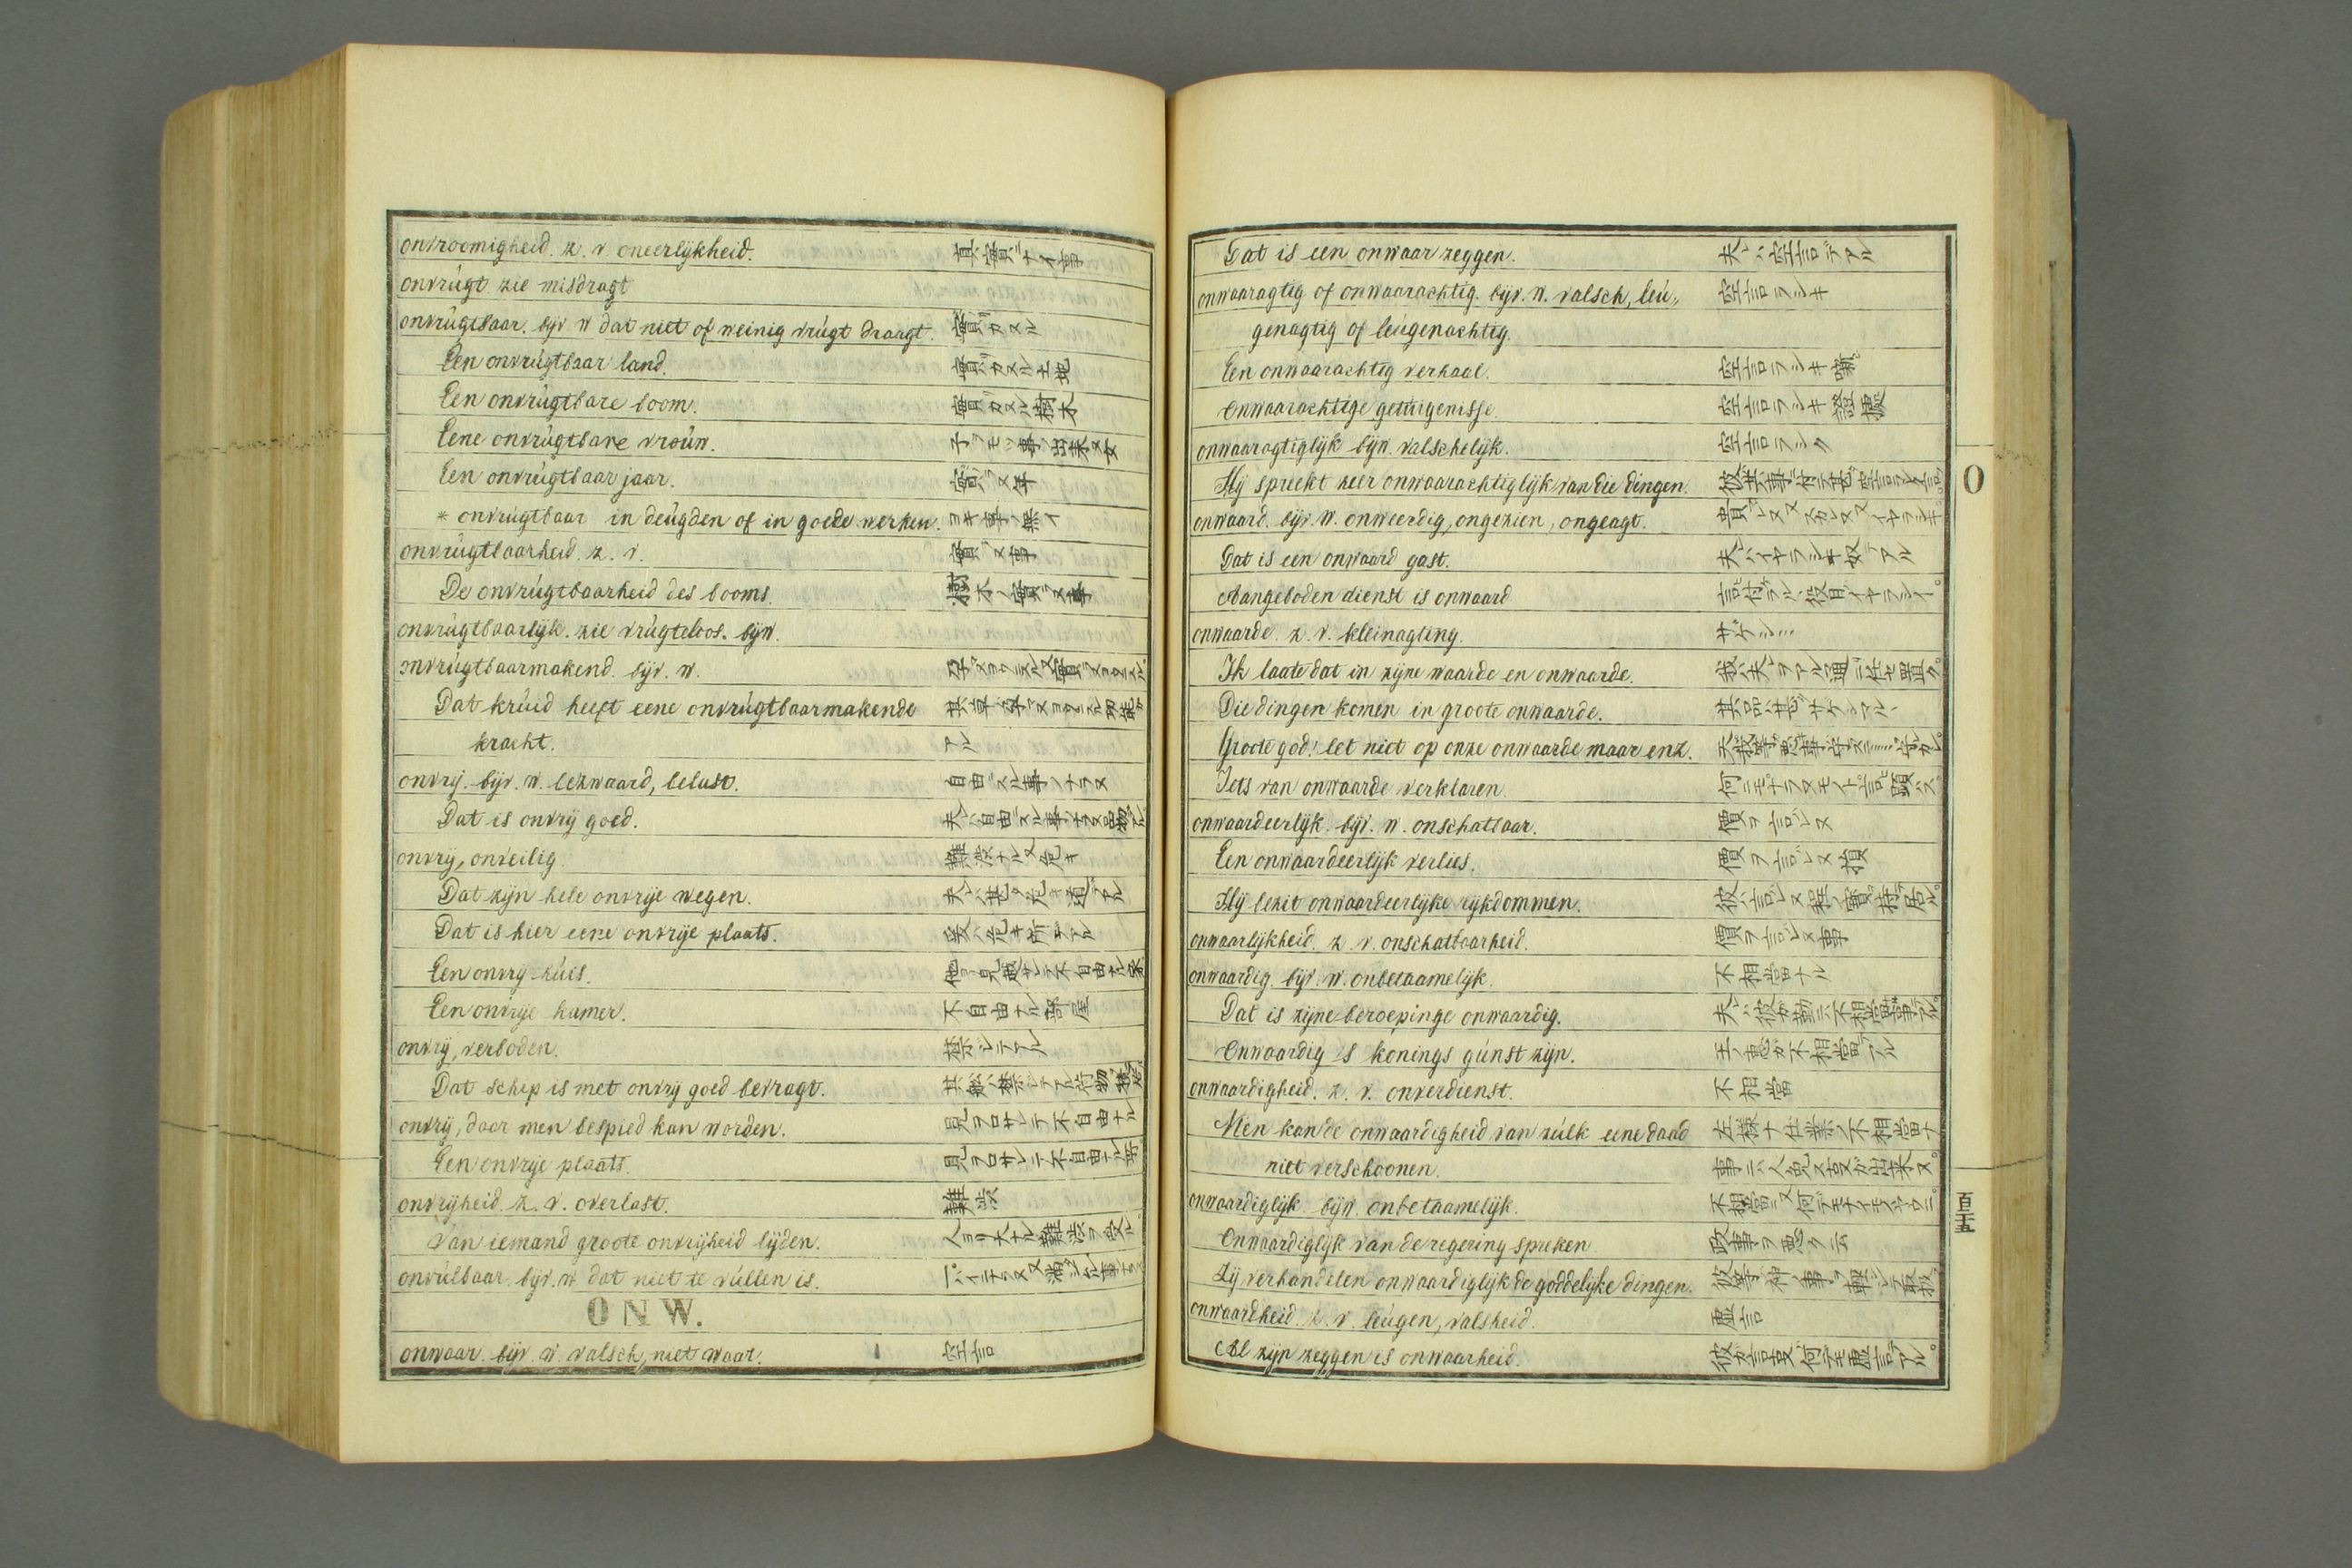 onvroomigheid. z. v. oneerlykheid. 真實ニナイ事
onvrúgt. zie misdragt
onvrúgtbaar. bijv. w. dat niet of weinig vrúgt draagt. 實ノカヌル
Een onvrúgtbaar land. 實ノカヌル土地
Een onvrúgtbare boom. 實ノカヌル樹木
Eene onvrúgtbare vroúw. 子ヲモツ事ノ出来ヌ女
Een onvrúgtbaar jaar. 實ラヌ年
* onvrúgtbaar in deúgden of in goede werken. ヨキ事ノ無イ
onvrúgtbaarheid. z. v. 實ラヌ事
De onvrúgtbaarheid des booms. 樹木ノ實ラヌ事
onvrúgtbaarlijk. zie vrúgteloos. bijw.
onvrúgtbaarmakend. bijv. w.
Dat krúid heeft eene onvrúgtbaarmakende
kracht. アル
onvrij. bijv. w. bezwaard, belast. 自由ニスル事ノナラヌ
Dat is onvrij goed. 夫レハ自由ニスル事ノナラヌ品物デアル
onvrij, onveilig. 難渋ナル又危キ
Dat zijn hele onvrije wegen. 夫レハ甚タ危キ道デアル
Dat is hier eene onvrije plaats. 爰ハ危キ所デアル
Een onvrij húis. 他ヨリ見越サレテ不自由ナル家
Een onvrije kamer. 不自由ナル部屋
onvrij, verboden. 禁シテアル
Dat schip is met onvrij goed bevragt. 其船ハ禁シテアル荷物ヲ積テ居ル
onvrij, daar men bespied kan worden. 見ヲロサレテ不自由ナル
Een onvrije plaats. 見ヲロサレテ不自由ナル所
onvrijheid. z. v. overlast. 難渋
Van iemand groote onvrijheid lijden. 人ヨリ大ナル難渋ヲ受ル
onvúlbaar. bijv. w. dat niet te vúllen is.
ONW.
onwaar. bijv. w. valsch, niet waar. 空言
Dat is een onwaar zeggen. 夫レハ空言デアル
onwaaragtig of onwaarachtig. bijv. w. valsch, leú- 空言ラシキ
genagtig of leúgenachtig.
Een onwaarachtig verhaal. 空言ラシキ噺
Onwaarachtige getúigenisse. 空言ラシキ證據
onwaaragtiglijk. bijw. valschelijk. 空言ラシク
Hij spreekt zeer onwaarachtiglijk van die dingen. 彼ハ其事ニ付テ甚空言ラシク言フ
onwaard. bijv. w. onweerdig, ongezien, ongeagt.
Dat is een onwaard gast. 夫レハイヤラシキ奴デアル
Aangeboden dienst is onwaard. 言付ラルヽ役目ハイヤラシイ
onwaarde. z. v. kleinagting. サゲシミ
Ik laate dat in zijne waarde en onwaarde. 我ハ夫レヲアル通リニ任セ置ク
Die dingen komen in groote onwaarde. 其品ハ甚サゲシマルヽ
Groote god! let niet op onze onwaarde maar enz.
Iets van onwaarde verklaren. 何ニモナラヌモノト言ヒ顕ハス
onwaardeerlijk. bijv. w. onschatbaar. 價ヲ言レヌ
Een onwaardeerlijk verlies. 價ヲ言レヌ損
Hij bezit onwaardeerlijke rijkdommen. 彼ハ言レヌ程ノ寶ヲ持テ居ル
onwaarlijkheid. z. v. onschatbaarheid. 價ヲ言レヌ事
onwaardig. bijv. w. onbetaamelijk. 不相當ナル
Dat is zijne beroepinge onwaardig. 夫レハ彼ガ勤ニハ不相當ノ事デアル
Onwaardig 's konings gúnst zijn. 王ノ恵ガ不相當デアル
onwaardigheid. z. v. onverdienst. 不相當
Men kan de onwaardigheid van zúlk eene daad 左様ナ仕業ノ不相當ナ
niet verschoonen. 事ニハ人免ス事ガ出来ヌ
onwaardiglijk. bijw. onbetaamelijk.
Onwaardiglijk van de regering spreken. 政事ヲ悪ク云
Zij verhandelen onwaardiglijk de goddelijke dingen. 彼等ハ神ノ事ヲ軽シテ取扱
onwaardheid. z. v. leúgen, valsheid. 虚言
Al zijn zeggen is onwaarheid. 彼ガ言ヿハ何デモ虚言デアル
O
百五十五